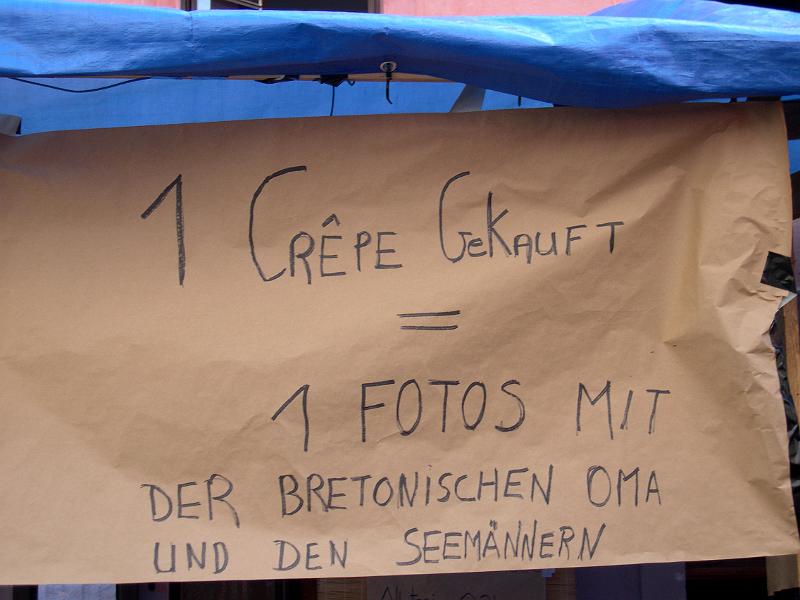 1 CRÊPE GEKAUFT
=
1 FOTOS MIT
DER BRETONISCHEN OMA
UND DEN SEEMÄNNERN